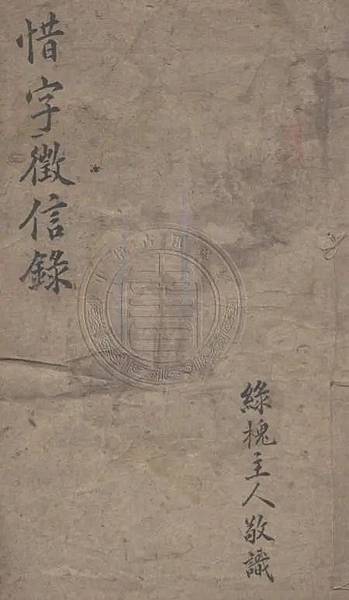 惜字徵信錄
綠槐主人敬識